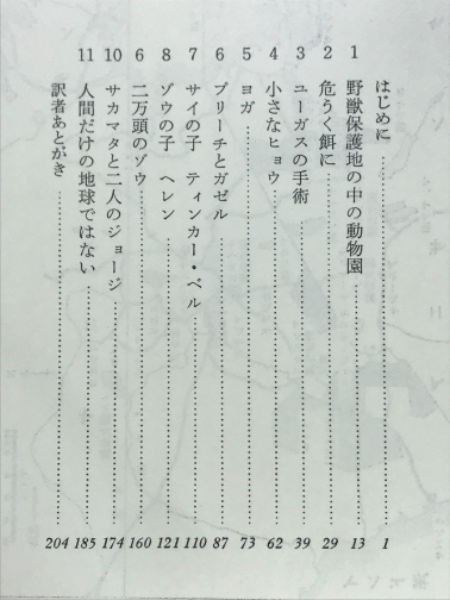 はじめに 1
1 野獣保護地の中の動物園 13
2 危うく餌に 29
3 ユーガスの手術 39
4 小さなヒョウ 62
5 ヨガ 73
6 ブリーチとガゼル 87
7 サイの子 ティンカー・ベル 110
8 ゾウの子 ヘレン 121
6 二万頭のゾウ 160
10 サカマタと二人のジョージ 174
11 人間だけの地球ではない 185
訳者あとがき 204